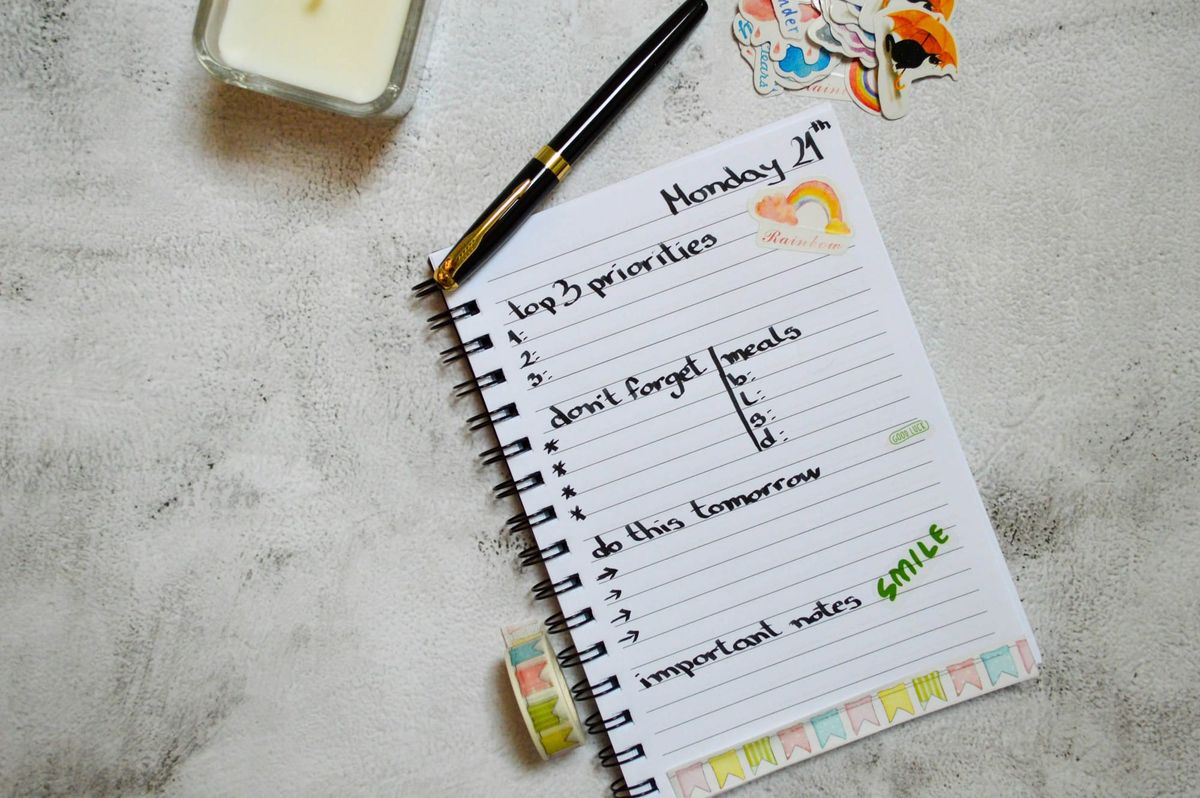 Tears
Monday 21th
Rainbow
top 3 priorities
1:
2:
3:
don't forget
*
*
*
*
meals
b:
L:
s:
d:
GOOD LUCK
do this tomorrow
→
→
→
→
SMILE
important notes